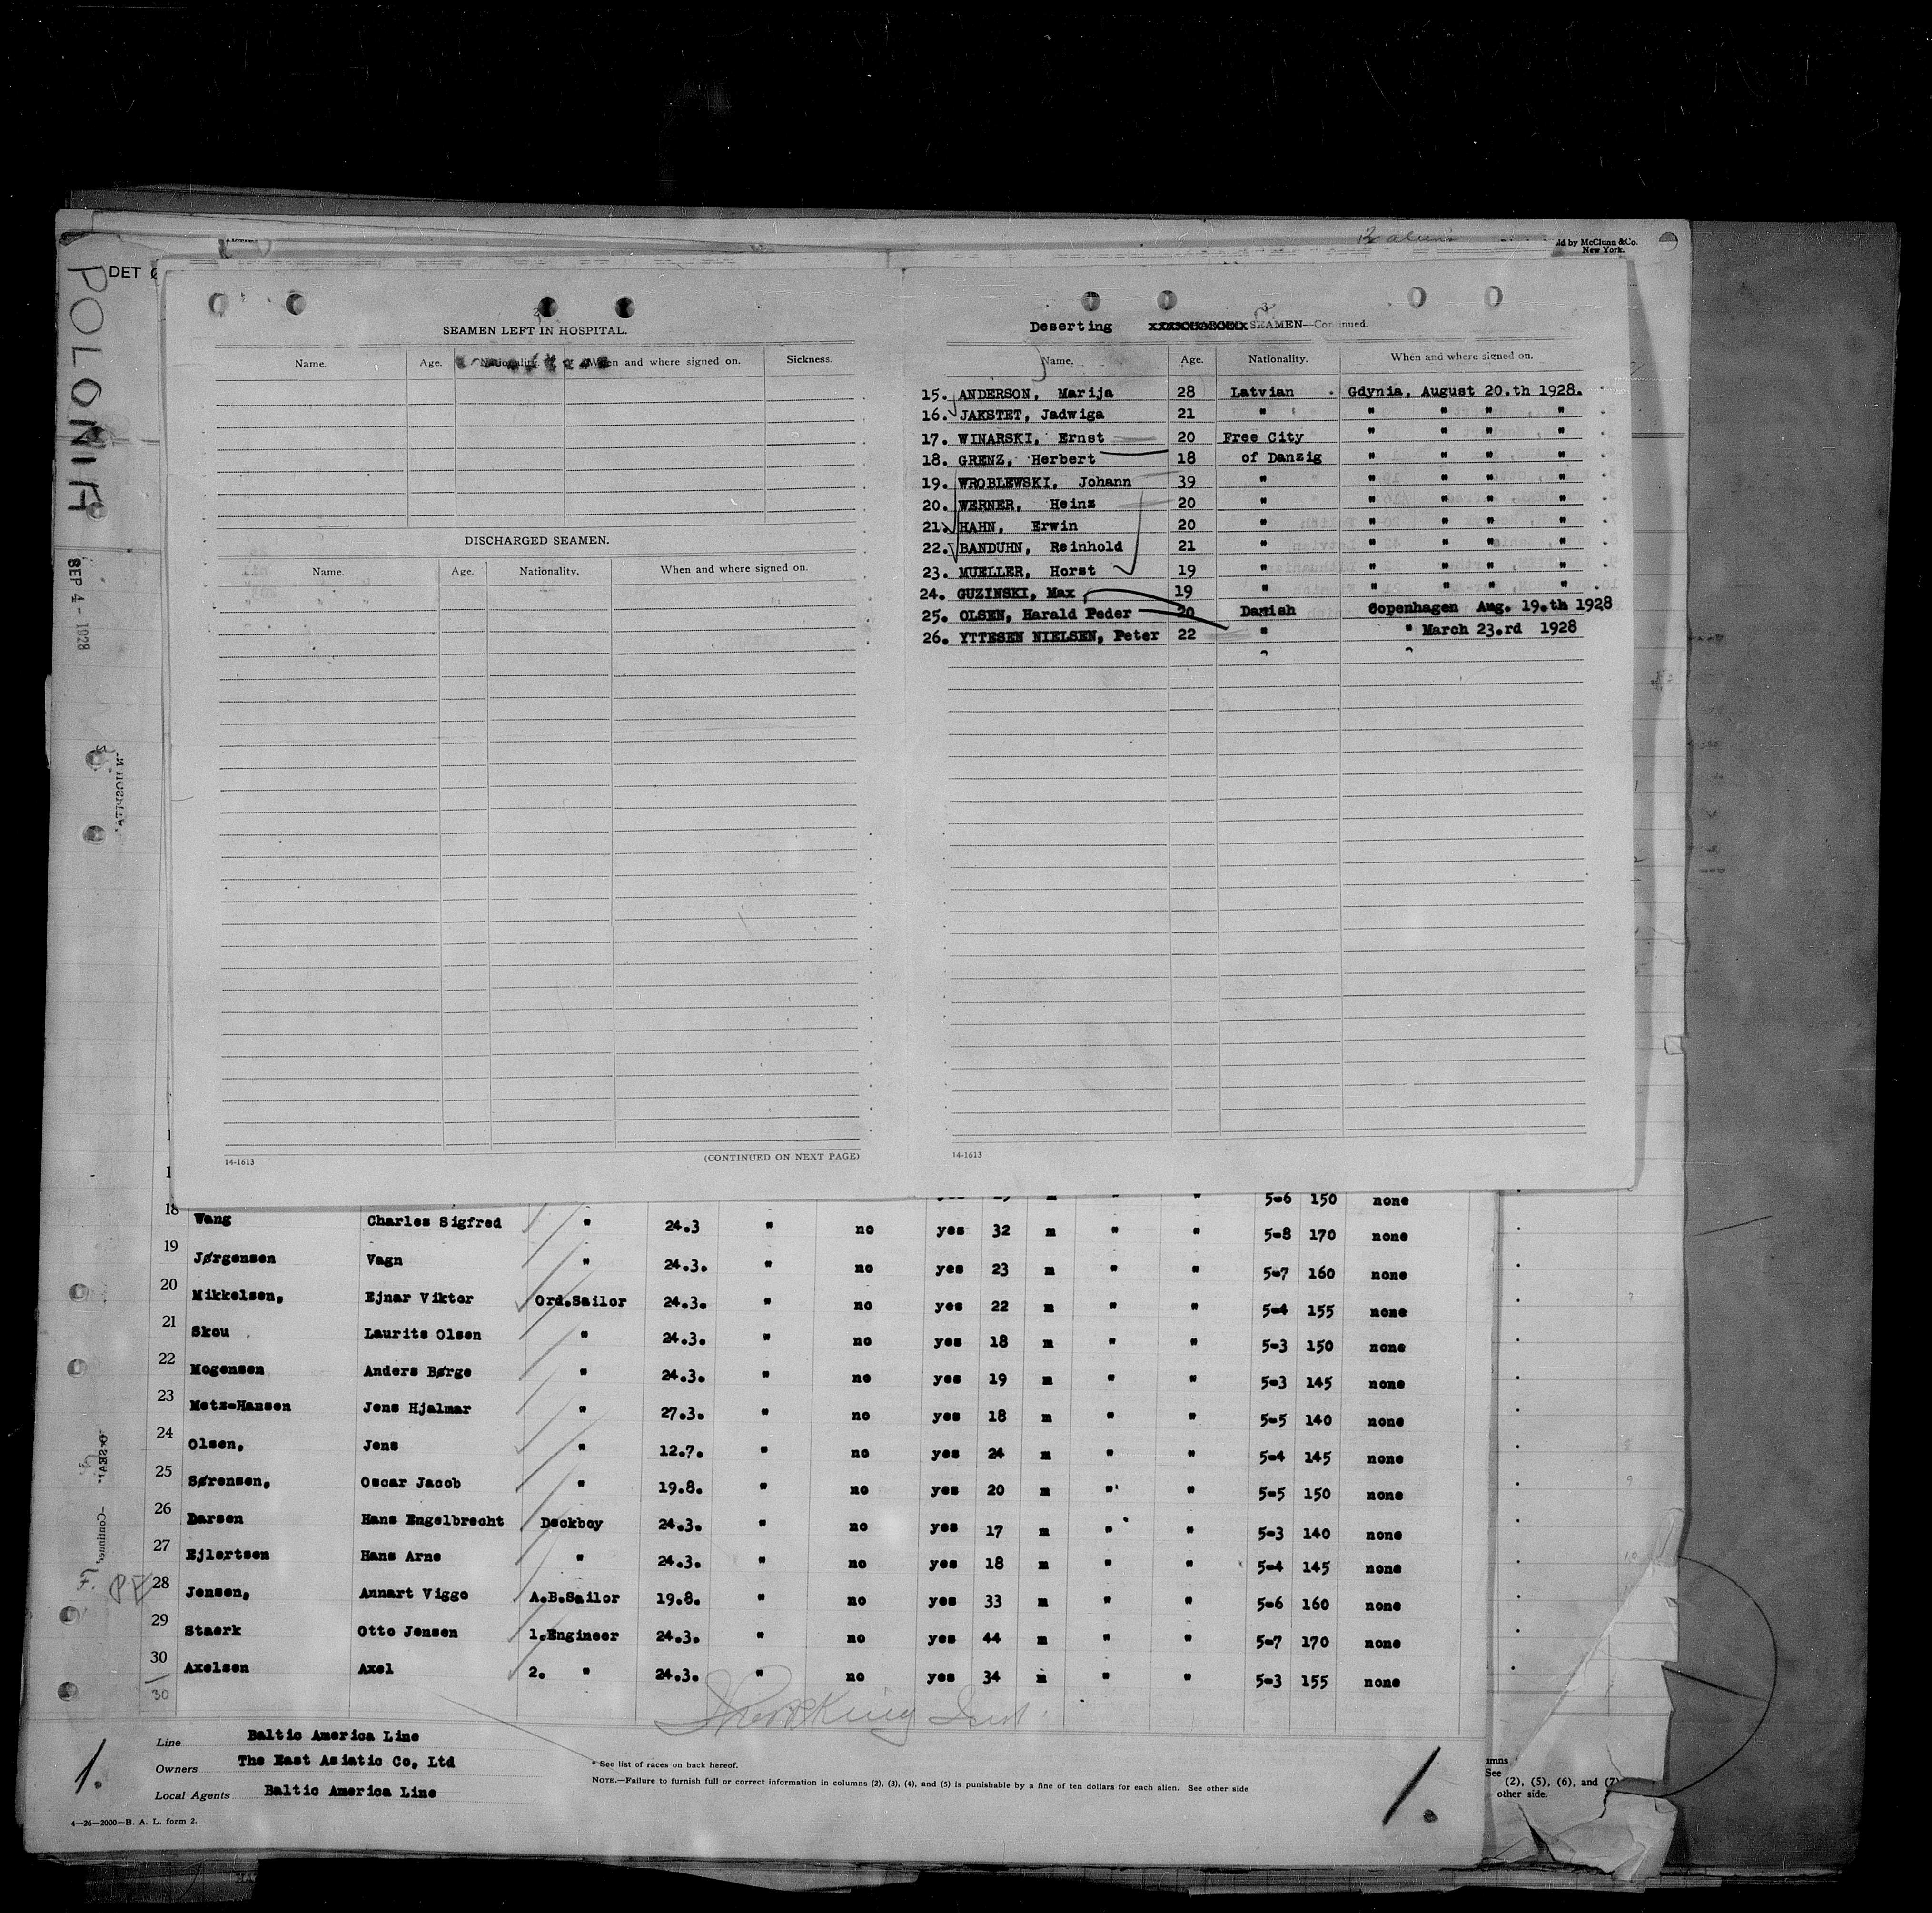 POLONIA
SEP 4 - 1928
DET
ld by McClunn &Co.
New York.
2
SEAMEN LEFT IN HOSPITAL.
Name. Age. Nationality. When and where signed on. Sickness.
DISCHARGED SEAMEN.
Name. Age. Nationality. When and where signed on.
14-1613 (CONTINUED ON NEXT PAGE)
3
Deserting SEAMEN—Continued.
Name. Age. Nationality. When and where signed on.
15. ANDERSON, Marija 28 Latvian Gdynia, August 20.th 1928.
16. JAKSTET, Jadwiga 21 " " " " "
17. WINARSKI, Ernst 20 Free City " " " "
18. GRENZ, Herbert 18 of Danzig " " " "
19. WROBLEWSKI, Johann 39 " " " " "
20. WERNER, Heinz 20 " " " " "
21. HAHN, Erwin 20 " " " " "
22. BANDUHN, Reinhold 21 " " " " "
23. MUELLER, Horst 19 " " " " "
24. GUZINSKI, Max 19 " " " " "
25. OLSEN, Harald Peder 20 Danish Copenhagen Aug. 19.th 1928
26. YTTESEN NIELSEN, Peter 22 " " March 23.rd 1928
14-1613
5-6 150 none
18 Wang Charles Sigfred " 24.3 " no yes 32 m " " 5-8 170 none
19 Jørgensen Vagn " 24.3. " no yes 23 m " " 5-7 160 none
20 Mikkelsen, Ejnar Viktor Ord.Sailor 24.3. " no yes 22 m " " 5-4 155 none
21 Skou Laurits Olsen " 24.3. " no yes 18 m " " 5-3 150 none
22 Mogensen Anders Børge " 24.3. " no yes 19 m " " 5-3 145 none
23 Metz-Hansen Jens Hjalmar " 27.3. " no yes 18 m " " 5-5 140 none
24 Olsen, Jens " 12.7. " no yes 24 m " " 5-4 145 none
25 Sørensen, Oscar Jacob " 19.8. " no yes 20 m " " 5-5 150 none
26 Darsen Hans Engelbrecht Deckboy 24.3. " no yes 17 m " " 5-3 140 none
27 Ejlertsen Hans Arne " 24.3. " no yes 18 m " " 5-4 145 none
28 Jensen, Annart Viggo A.B.Sailor 19.8. " no yes 33 m " " 5-6 160 none
29 Staerk Otto Jensen 1.Engineer 24.3. " no yes 44 m " " 5-7 170 none
30 Axelsen Axel 2. " 24.3. " no yes 34 m " " 5-3 155 none
30
Line Baltic America Line
Owners The East Asiatic Co, Ltd
Local Agents Baltic America Line
1.
* See list of races on back hereof.
NOTE.—Failure to furnish full or correct information in columns (2), (3), (4), and (5) is punishable by a fine of ten dollars for each alien. See other side
1.
4—26—2000—B. A. L. form 2.
umns
See
(2), (5), (6), and (7)
other side.